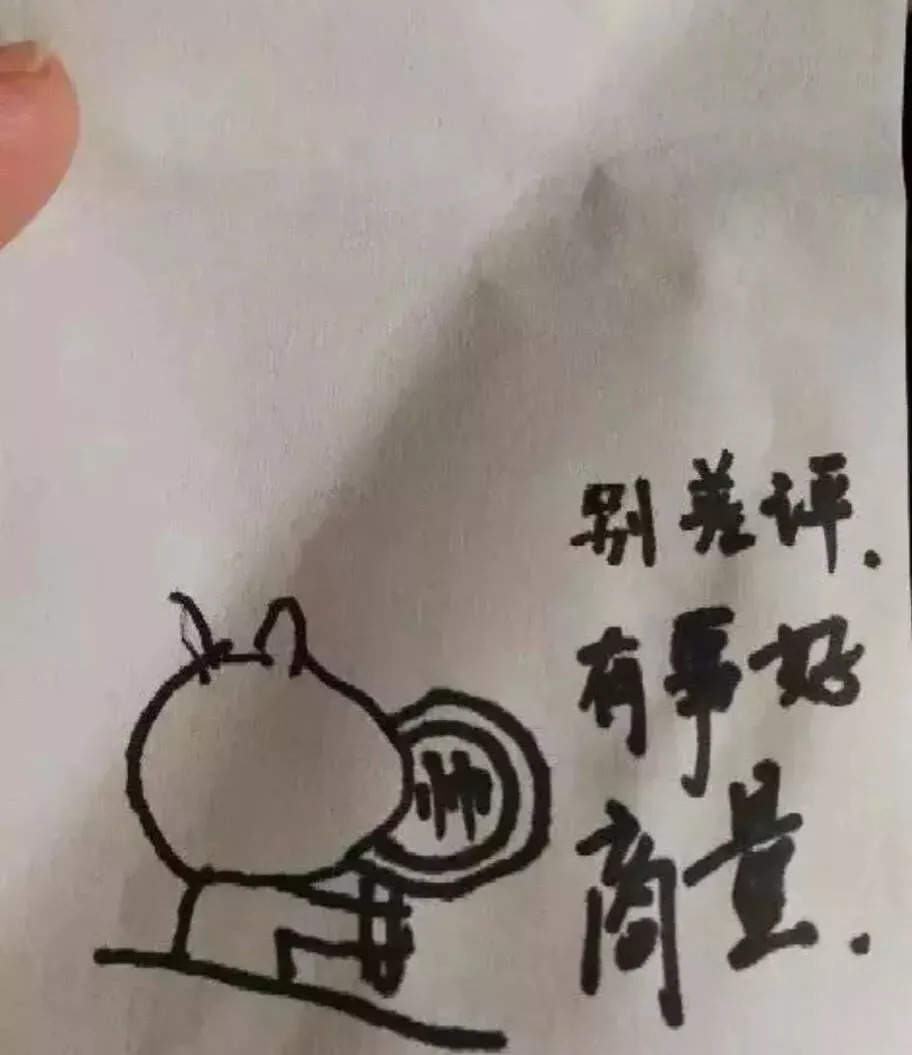 帅
别差评.
有事好
商量.